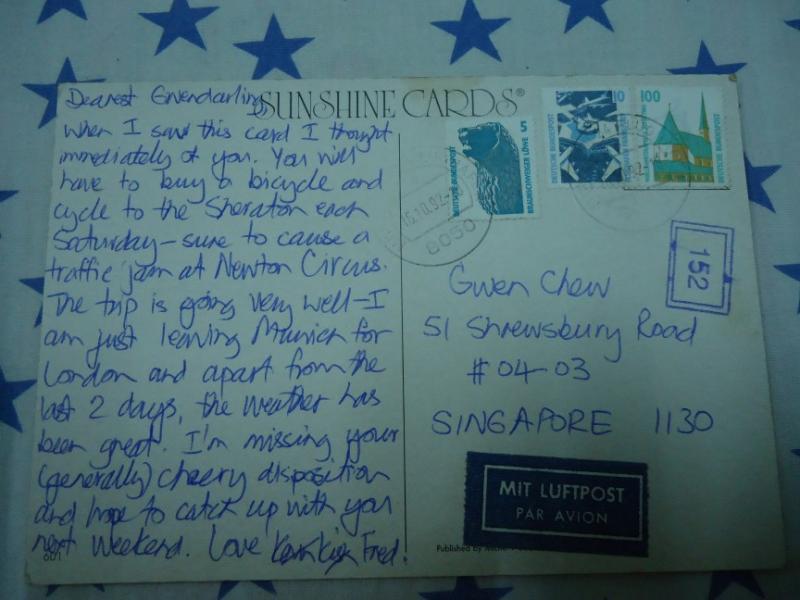 Dearest Gwendarling
SUNSHINE CARDS®
When I saw this card I thought
immediately of you. You will
have to buy a bicycle and
cycle to the Sheraton each
Saturday - sure to cause a
traffic jam at Newton Circus.
The trip is going very well - I
am just leaving Munich for
London and apart from the
last 2 days, the weather has
been great. I'm missing your
(generally) cheery disposition
and hope to catch up with you
next weekend. Love Fred!
601
5
DEUTSCHE BUNDESPOST
BRAUNSCHWEIGER LÖWE
10
DEUTSCHE BUNDESPOST
100
DEUTSCHE BUNDESPOST
8050
152
Gwen Chew
51 Shrewsbury Road
#04-03
SINGAPORE 1130
MIT LUFTPOST
PAR AVION
Published by